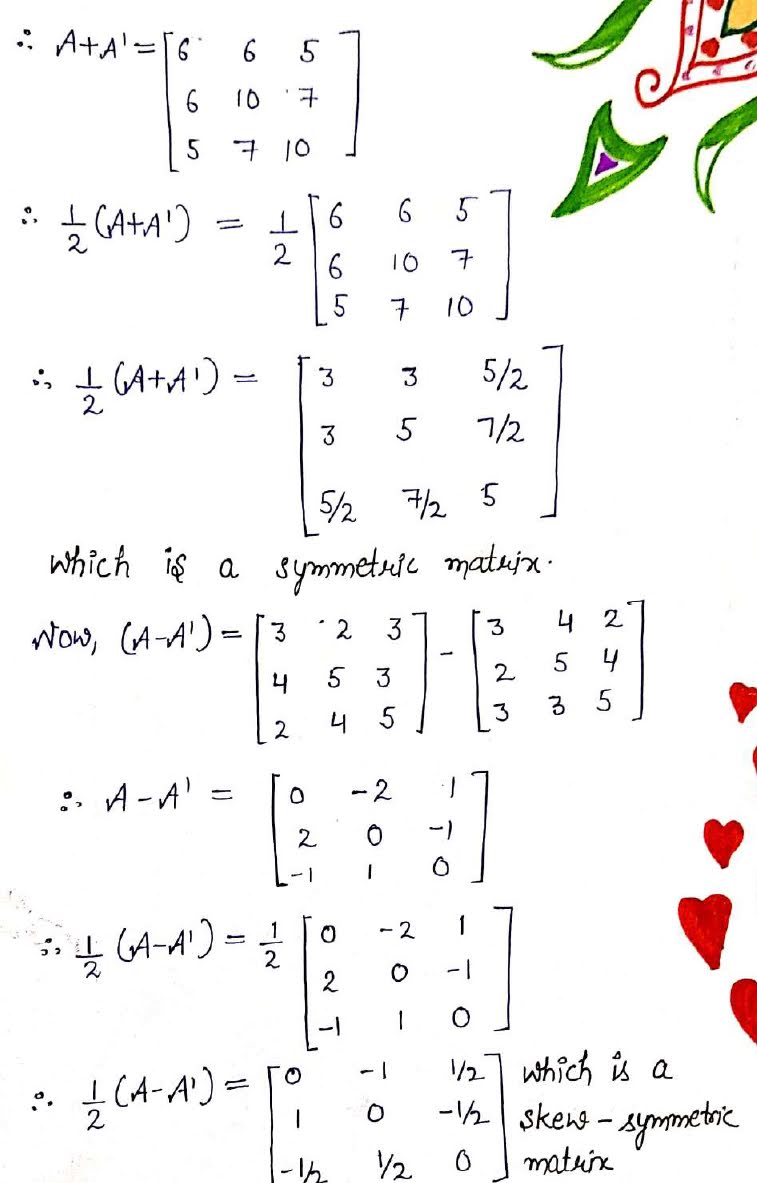 ∴ A+A' = [6 6 5
6 10 7
5 7 10]
∴ 1/2 (A+A') = 1/2 [6 6 5
6 10 7
5 7 10]
∴ 1/2 (A+A') = [3 3 5/2
3 5 7/2
5/2 7/2 5]
which is a symmetric matrix.
Now, (A-A') = [3 2 3 - [3 4 2
4 5 3 2 5 4
2 4 5] 3 3 5]
∴ A-A' = [0 -2 1
2 0 -1
-1 1 0]
∴ 1/2 (A-A') = 1/2 [0 -2 1
2 0 -1
-1 1 0]
∴ 1/2 (A-A') = [0 -1 1/2 which is a
1 0 -1/2 skew-symmetric
-1/2 1/2 0] matrix